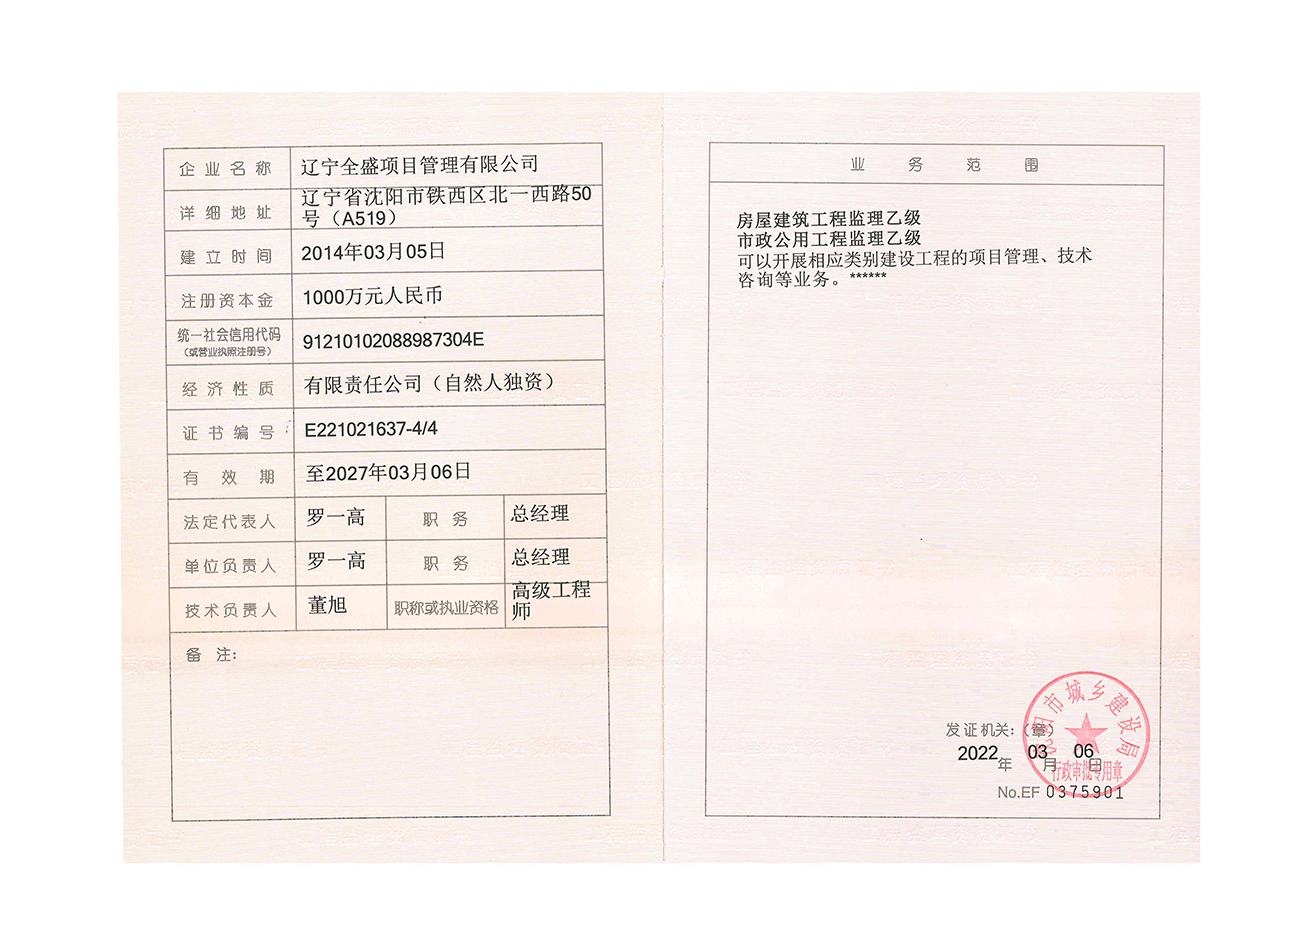 企业名称 辽宁全盛项目管理有限公司
详细地址 辽宁省沈阳市铁西区北一西路50
号（A519）
建立时间 2014年03月05日
注册资本金 1000万元人民币
统一社会信用代码 91210102088987304E
（或营业执照注册号）
经济性质 有限责任公司（自然人独资）
证书编号 E221021637-4/4
有效期 至2027年03月06日
法定代表人 罗一高 职务 总经理
单位负责人 罗一高 职务 总经理
技术负责人 董旭 职称或执业资格 高级工程
师
备注:
业务范围
房屋建筑工程监理乙级
市政公用工程监理乙级
可以开展相应类别建设工程的项目管理、技术
咨询等业务。******
沈阳市城乡建设局
发证机关:（章）
2022年03月06日
行政审批专用章
No.EF 0375901